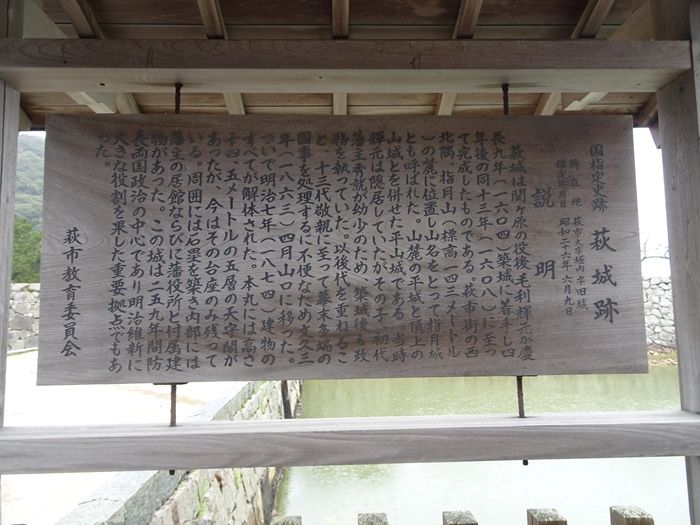 国指定史跡 萩城跡
所在地 萩市大字堀内字旧城
指定年月日 昭和二十六年六月九日
説明
萩城は関ヶ原の役後毛利輝元が慶
長九年(一六〇四)築城に着手し四
年後の同十三年(一六〇八)に至っ
て完成したものである。萩市街の西
北隅、指月山(標高一四三メートル
)の麓に位置し山名をとって指月城
とも呼ばれた。山麓の平城と頂上の
山城とを併せた平山城である。当時
輝元は隠居していたが、その子、初代
藩主秀就が幼少のため、築城後も政
務を執っていた。以後代を重ねるこ
と、十三代敬親に至って幕末多端の
国事を処理するに不便なため文久三
年(一八六三)四月山口に移った。
ついで明治七年(一八七四)建物の
すべてが解体された。本丸には高さ
十四・五メートルの五層の天守閣が
あったが、今はその台座のみ残って
いる。周囲には石塁を築き内部には
藩主の居館ならびに藩役所と付属建
物があった。この城は二五九年間防
長両国政治の中心であり明治維新に
大きな役割を果した重要拠点でもあ
った。
萩市教育委員会